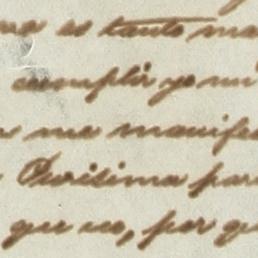 es tanto ma
cumplir yo mi
me manifes
Purisima par
que no, por qu